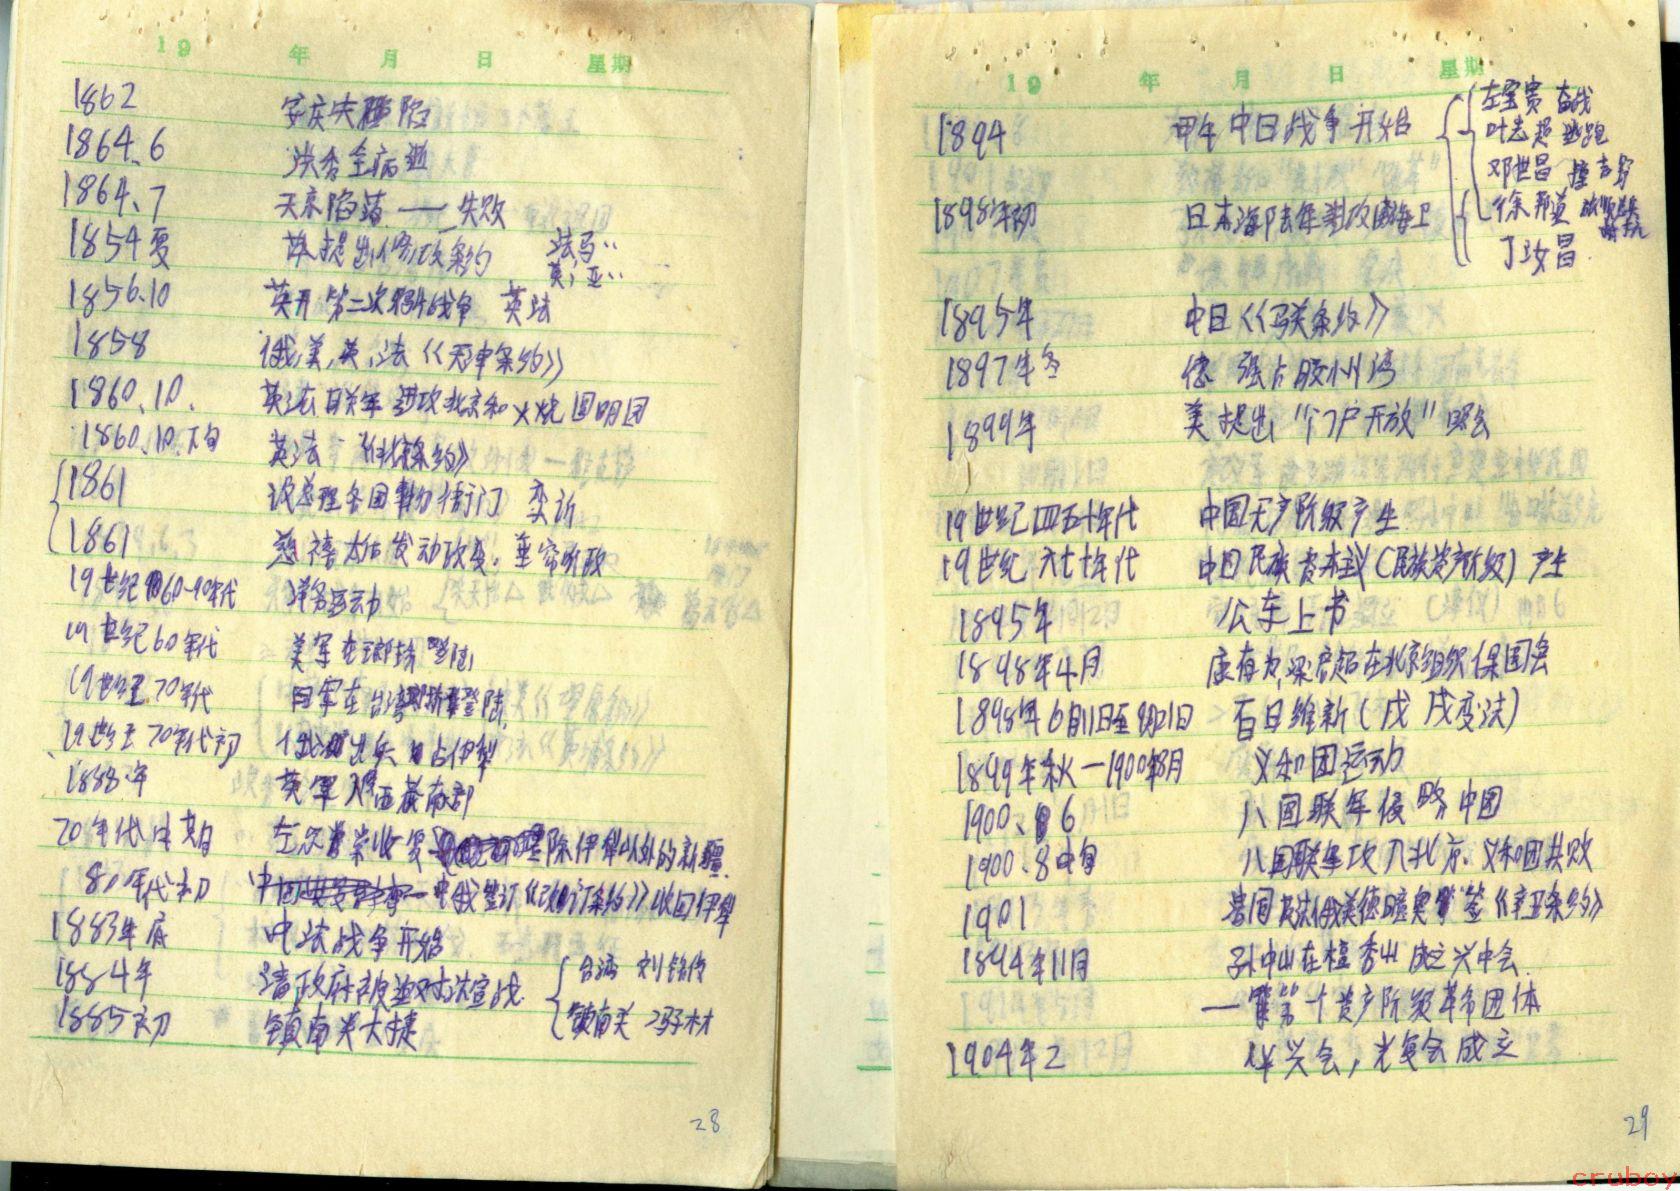 19 年 月 日 星期
1862 安庆失陷
1864.6 洪秀全病逝
1864.7 天京陷落——失败
1854夏 提出修改条约 法马..
英,亚..
1856.10 英开第二次鸦片战争 英法
1858 俄,美,英,法《天津条约》
1860.10. 英法联军进攻北京和火烧圆明园
1860.10.下旬 英法《北京条约》
1861 设总理各国事务衙门
1861 慈禧太后发动政变。垂帘听政
19世纪60-90年代 洋务运动
19世纪60年代 美军在登陆
19世纪70年代 日军在台湾登陆
19世纪70年代初 俄出兵占伊犁
1888年 英军入西藏南部
70年代中期 左宗棠收复除伊犁以外的新疆
80年代初 中俄签订《改订条约》收回伊犁
1883年底 中法战争开始
1884年 清政府被迫对法宣战 台湾 刘铭传
1885初 镇南关大捷 镇南关 冯子材
28
19 年 月 日 星期
1894 甲午中日战争开始 左宝贵 奋战
叶志超 逃跑
邓世昌 撞吉野
1898年初 日本海陆军进攻威海卫 徐邦道
丁汝昌
1895年 中日《马关条约》
1897年冬 德 强占胶州湾
1899年 美提出"门户开放"照会
19世纪四五十年代 中国无产阶级产生
19世纪六七十年代 中国民族资本主义(民族资产阶级)产生
1895年 公车上书
1898年4月 康有为,梁启超在北京组织保国会
1898年6月11日至9月21日 百日维新(戊戌变法)
1899年秋—1900年8月 义和团运动
1900、6 八国联军侵略中国
1900.8中旬 八国联军攻入北京.义和团失败
1901 签《辛丑条约》
1894年11月 孙中山在檀香山成立兴中会
—第一个资产阶级革命团体
1904年2 华兴会,光复会成立
29
cruboy